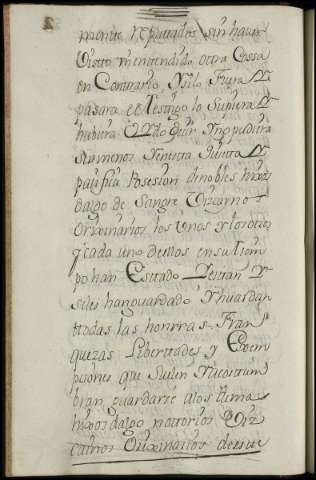 mente reputados sin haver
Visto ni entendido otra Cossa
en Contrario, Y silo fuera
pasara el testigo lo supiera
hubiera oydo
sumenos
pacifica Posesion de nobles hixos
dalgo de Sangre Vizcayno
orixinarios los unos y los otros
y cada uno dellos en su tiem
po han Estado Y
se les han guardado Y guardan
ttodas las honrras Fran
quezas Libertades y Exem
psiones que Suelen Y acostum
bran guardarse alos Dema
hixosdalgo nottorios Viz
cainos Orixinarios deeste